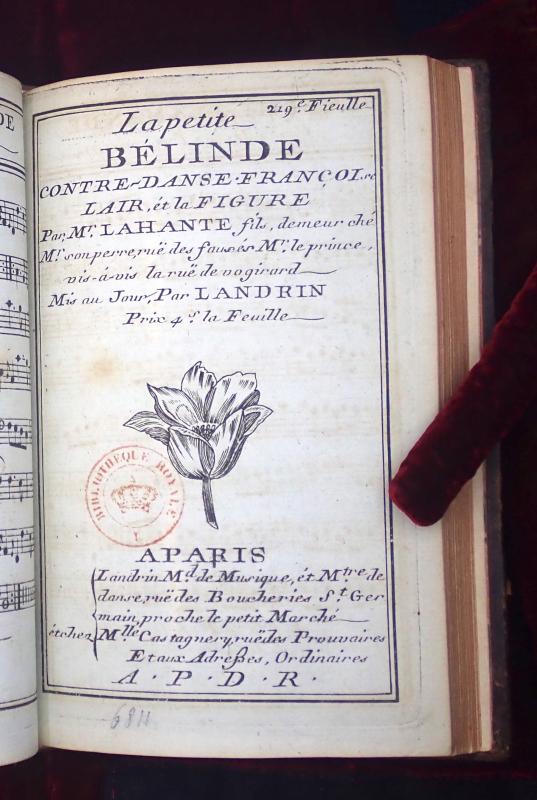 DE
219.e Fieulle
La petite
BÉLINDE
CONTRE-DANSE-FRANÇOI.se
LAIR, ét la FIGURE
Par, M.r LAHANTE fils, demeur ché
M.r son perre, ruë des fausés M.r le prince,
vis-á-vis la ruë de vogirard
Mis au Jour, Par LANDRIN
Prix 4.s la Feuille
BIBLIOTHEQUE ROYALE
I
APARIS
Landrin M.d de Musique, ét M.tre de
danse, ruë des Boucheries S.t Ger
main, proche le petit Marché
ét chez M.lle Castagnery, ruë des Prouvaires
Et aux Adreßes, Ordinaires
A . P . D . R .